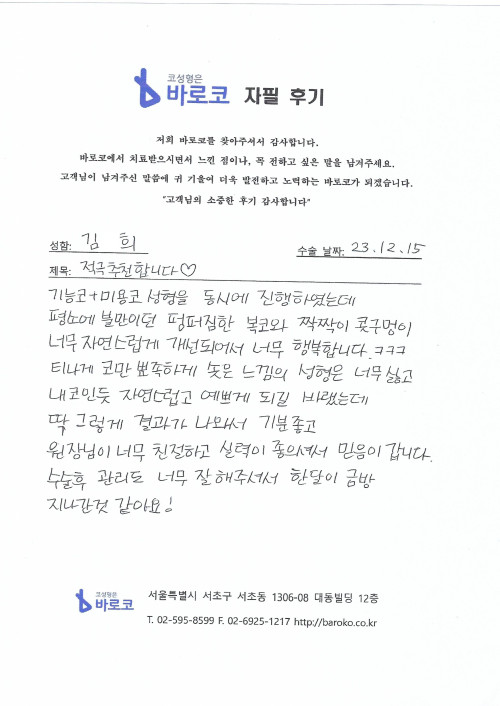 코성형은
바로코 자필 후기
저희 바로코를 찾아주셔서 감사합니다.
바로코에서 치료받으시면서 느낀 점이나, 꼭 전하고 싶은 말을 남겨주세요.
고객님이 남겨주신 말씀에 귀 기울여 더욱 발전하고 노력하는 바로코가 되겠습니다.
"고객님의 소중한 후기 감사합니다"
성함: 김 희 수술 날짜: 23.12.15
제목: 적극추천합니다♡
기능코+미용코 성형을 동시에 진행하였는데
평소에 불만이던 펑퍼짐한 복코와 짝짝이 콧구멍이
너무 자연스럽게 개선되어서 너무 행복합니다.ㅋㅋㅋ
티나게 코만 뾰족하게 높은 느낌의 성형은 너무싫고
내코인듯 자연스럽고 예쁘게 되길 바랬는데
딱 그렇게 결과가 나와서 기분좋고
원장님이 너무 친절하고 실력이 좋으셔서 믿음이 갑니다.
수술후 관리도 너무 잘해주셔서 한달이 금방
지나간것 같아요!
코성형은
바로코 서울특별시 서초구 서초동 1306-08 대동빌딩 12층
T. 02-595-8599 F. 02-6925-1217 http://baroko.co.kr